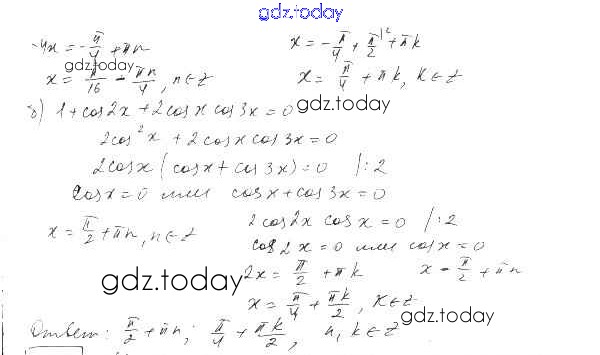 gdz.today
-4x = -π/4 + πn    x = -π/4 + π/2 + πk
gdz.today
x = π/16 - πn/4, n∈Z    x = π/4 + πk, k∈Z
gdz.today
б) 1 + cos2x + 2cosx cos3x = 0
2cos²x + 2cosx cos3x = 0
2cosx (cosx + cos3x) = 0 /:2
cosx = 0 или cosx + cos3x = 0
x = π/2 + πn, n∈Z    2cos2x cosx = 0 /:2
cos2x = 0 или cosx = 0
gdz.today
2x = π/2 + πk    x = π/2 + πn
x = π/4 + πk/2, k∈Z
gdz.today
Ответ: π/2 + πn; π/4 + πk/2, n, k∈Z